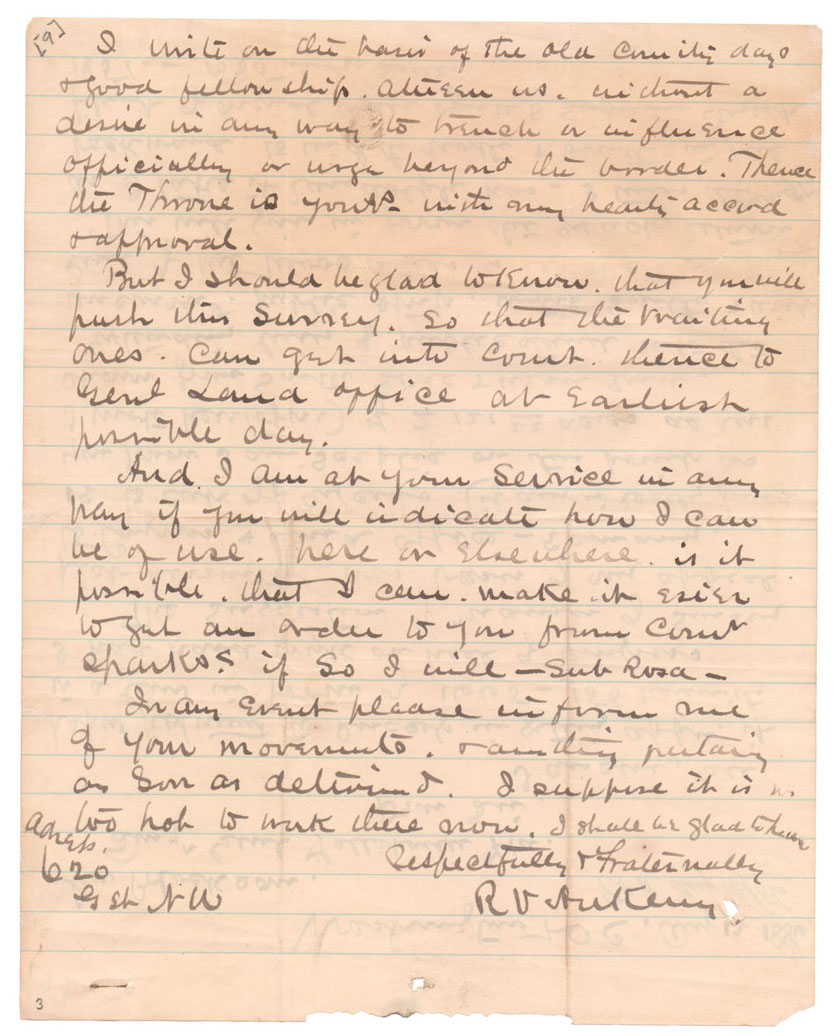 [9]
I write on the basis of the old comity days
& good fellowship. atween us. without a
desire in any way to trench or influence
officially or urge beyond the border. Thence
the Throne is yours with my hearty accord
& approval.
But I should be glad to know. that you will
push this Survey. so that the waiting
ones. can get into court. thence to
Genl Land office at Earliest
possible day.
And. I am at your Service in any
way if you will indicate how I can
be of use. here or elsewhere. is it
possible. that I can. make it esier
to get an order to you from Com
Sparks? if so I will — Sub Rosa —
In any Event please inform me
of your movements. & anything pertaing
as Soon as determind. I suppose it is
too hot to work there now. I shall be glad to hear
Adress.
Respectfully & Fraternally
620
G St N W
R V Ankeny
3